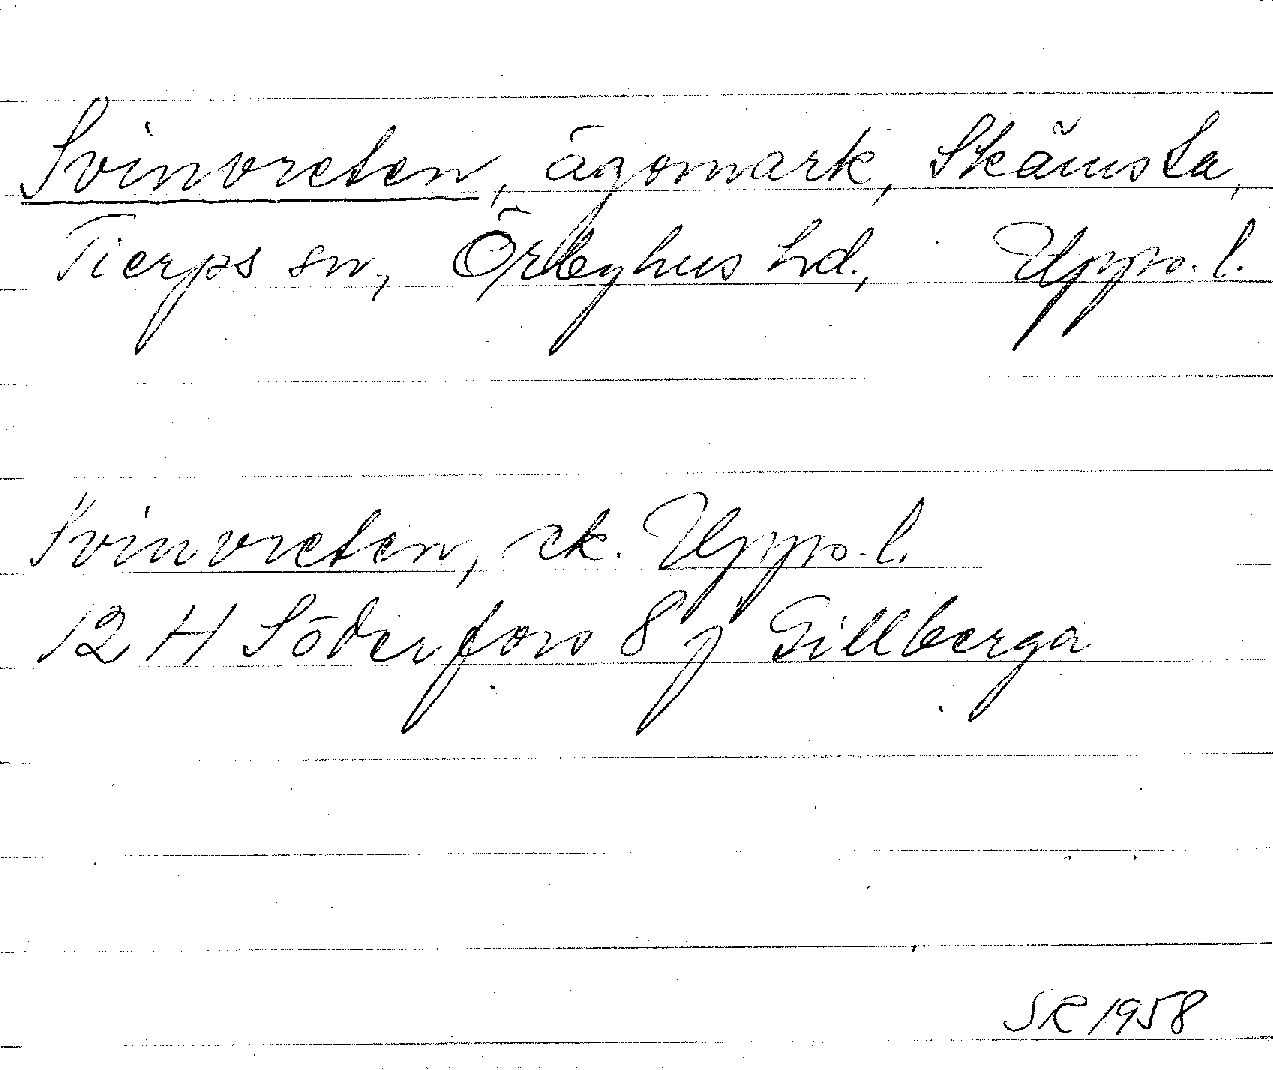 Svinvreten, ägomark, Skämsta,
Tierps sn, Örbyhus hd., Upps. l.
Svinvreten, ek. Upps. l.
12 H Söderfors 8 j Gillberga
SR 1958